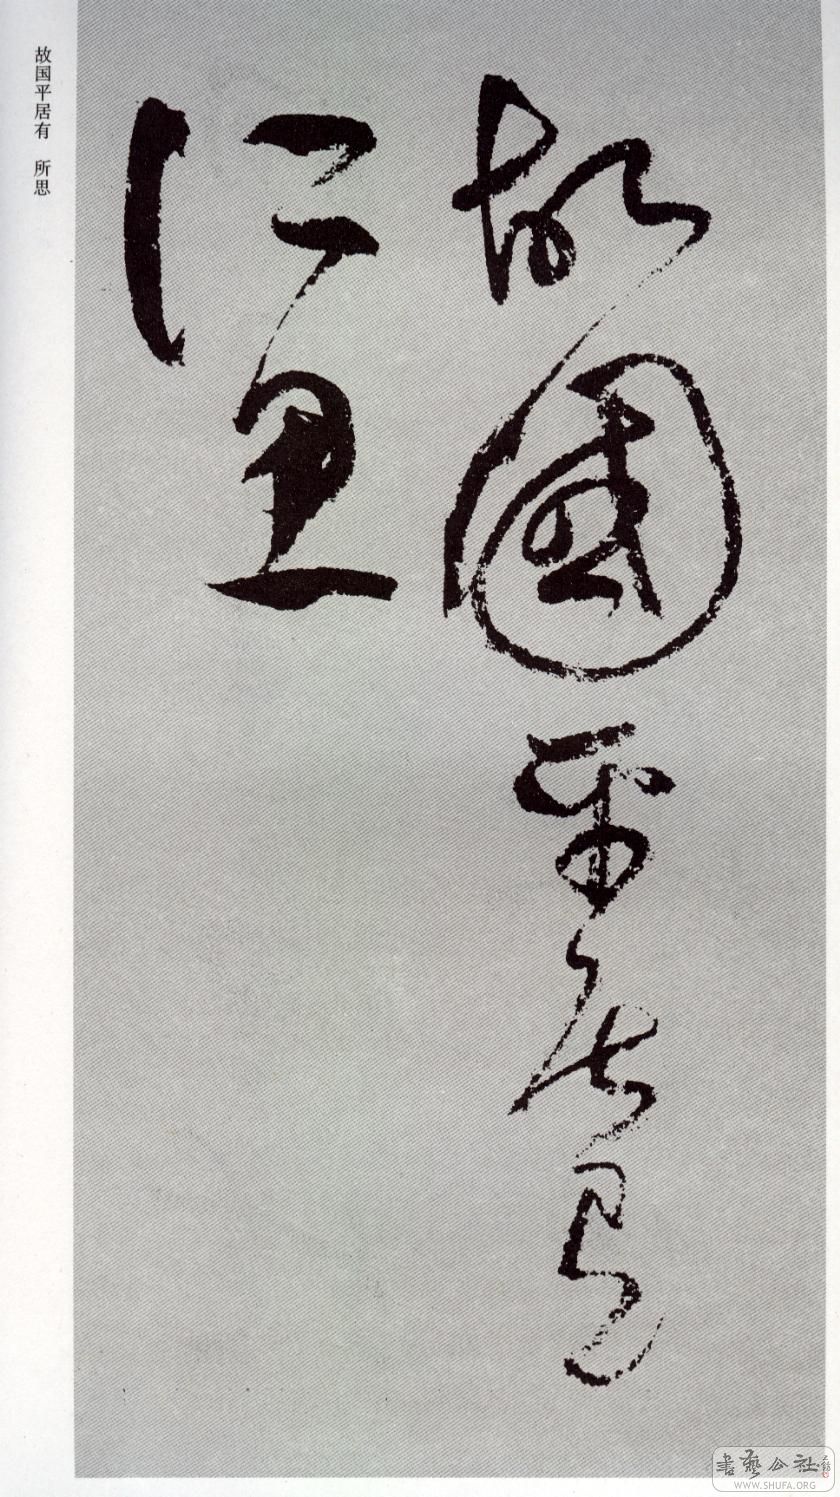 故國平居有
所思
故国平居有 所思
書藝公社
WWW.SHUFA.ORG